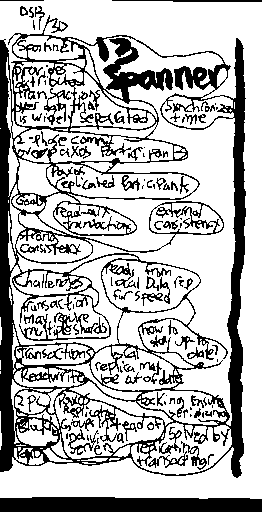 DS12
11/20
13
Spanner
Spanner
Provides
distributed
transactions
over data that
is widely separated
synchronized
time
2-phase commit
over paxos participants
Paxos
replicated participants
Goals
read-only
transactions
external
consistency
strong
consistency
Challenges
reads from
local data rep
for speed
Transaction
may require
multiple shards
how to
stay up to
date?
Transactions
local
replica may
be out of date
Read write
locking ensures
2PC
Paxos
Replicated
groups instead of
individual
servers
solved by
replicating
transaction